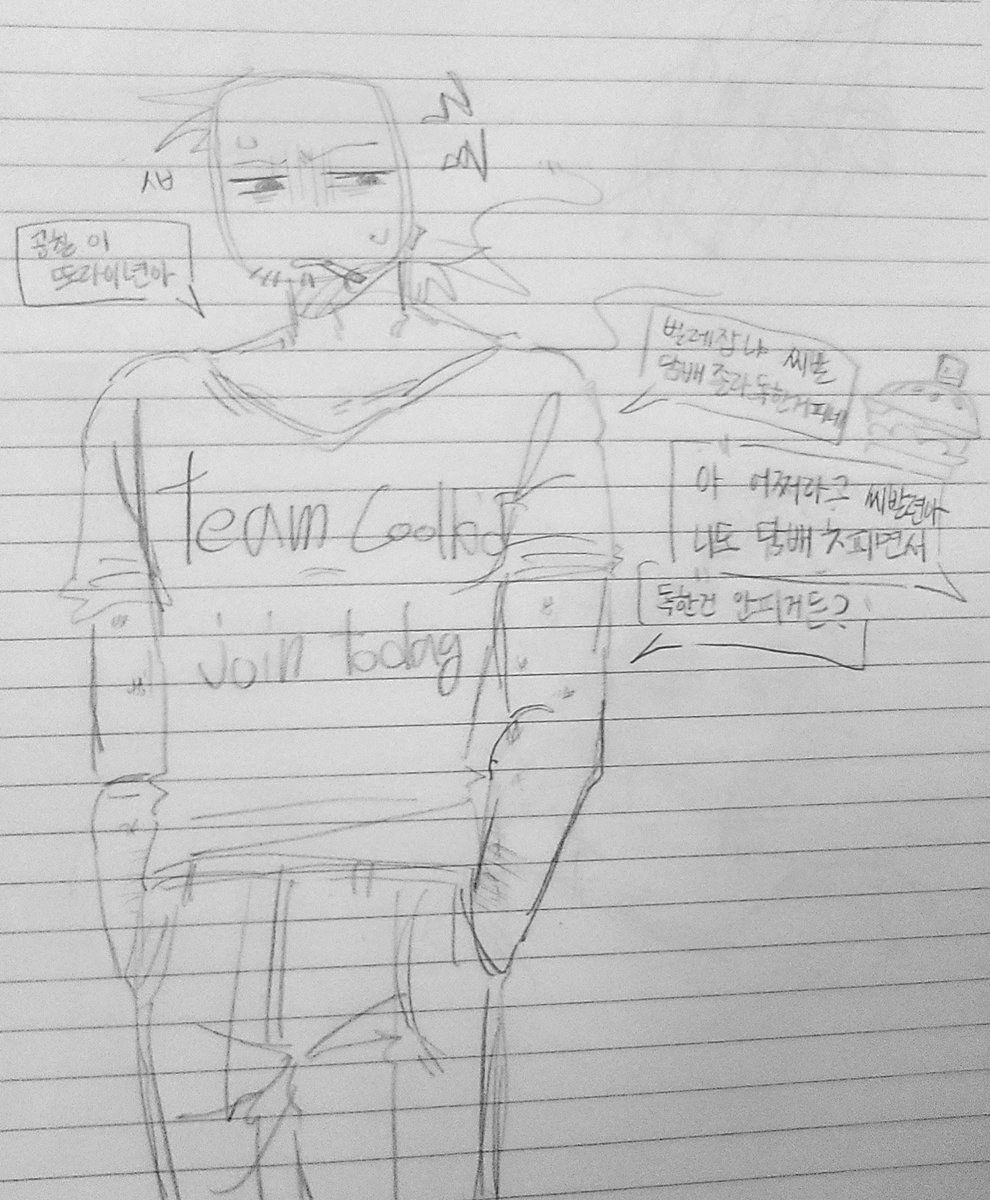 ㅅㅂ
곱창 이
또라이년아
벌레잡냐 씨발
담배 존라 독한거피네
아 어쩌라그 씨발련아
니도 담배 ㅈ피면서
독한건 안피거든?
Team Coolkid
join today